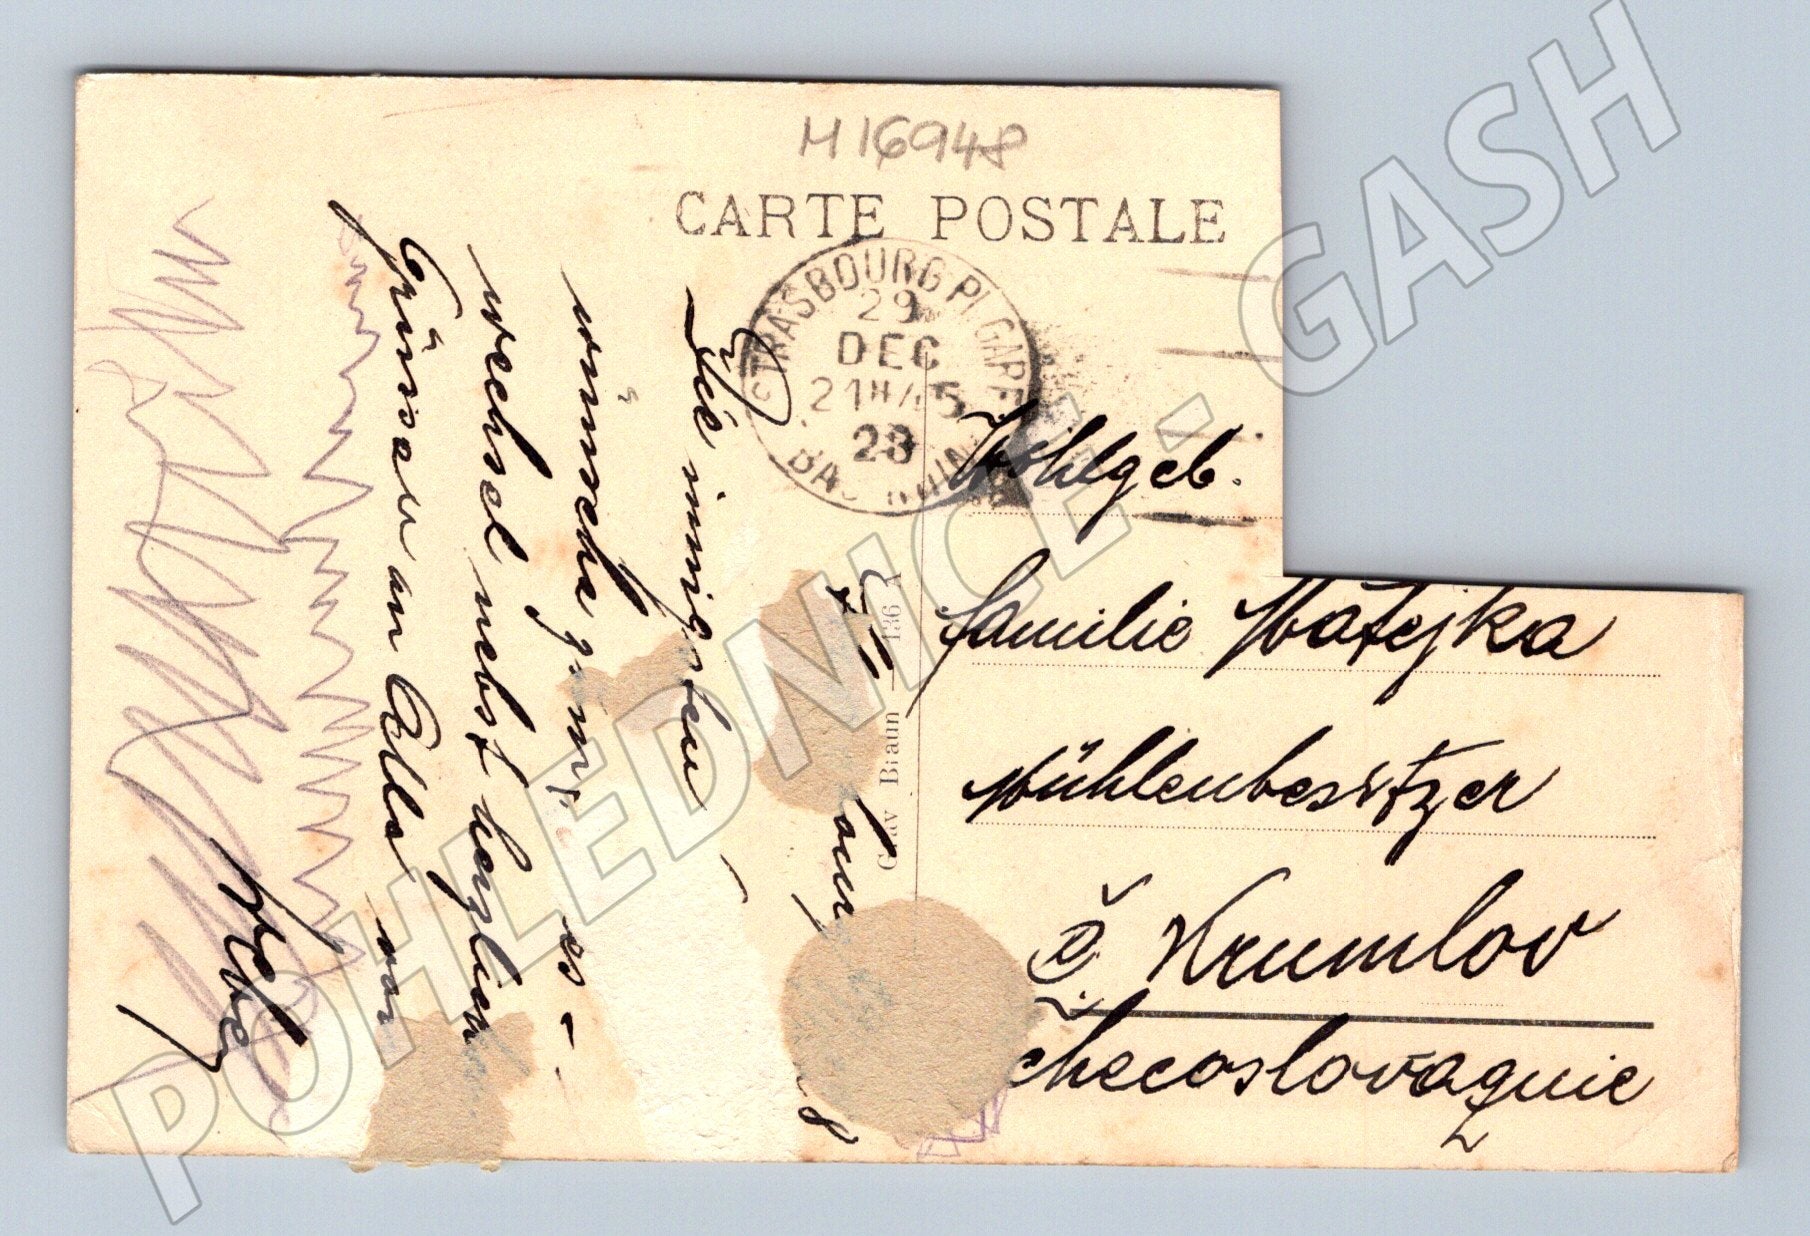 H 16948
CARTE POSTALE
STRASBOURG Pl. GARE
29
DEC
21H45
28
BAS RHIN
Die innigsten
wünsche zum
wechsel nebst herzlichen
Grüssen an Alle von
Wohlgeb.
Familie Matejka
Mühlenbesitzer
Č. Krumlov
Tchecoslovaquie
Grav Braun — 136 A
POHLEDNICE - GASH